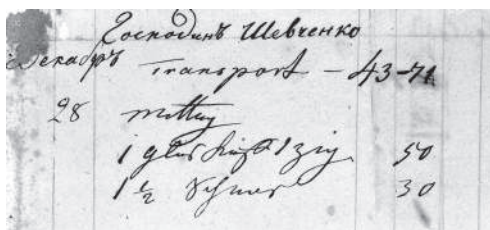 Господинъ Шевченко
Декабръ Transport – 43-71
28 Mittag
1 glas 50
1 ½ 30